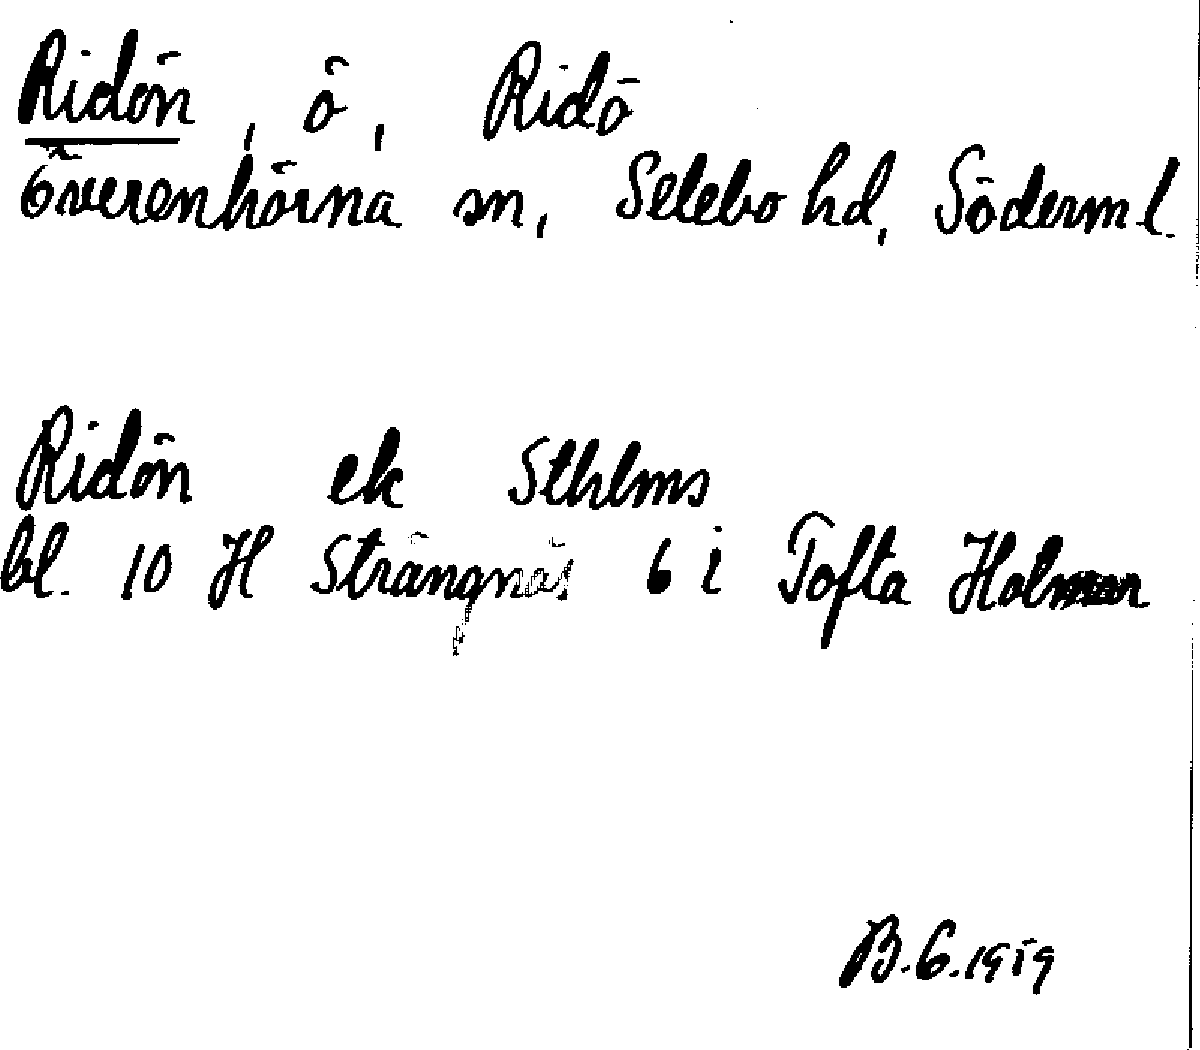 Ridön, ö, Ridö
Överenhörna sn, Selebo hd, Söderml.
Ridön ek Sthlms
bl. 10 H Strängnäs 6 i Tofta Holmar
B.G. 1919